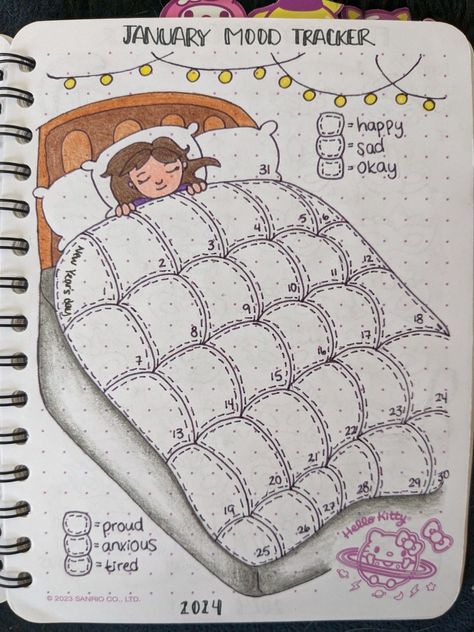 JANUARY MOOD TRACKER
= happy
= sad
= okay
31
New Year's day
1
2
3
4
5
6
7
8
9
10
11
12
13
14
15
16
17
18
19
20
21
22
23
24
25
26
27
28
29
30
= proud
= anxious
= tired
Hello Kitty
© 2023 SANRIO CO., LTD.
2024